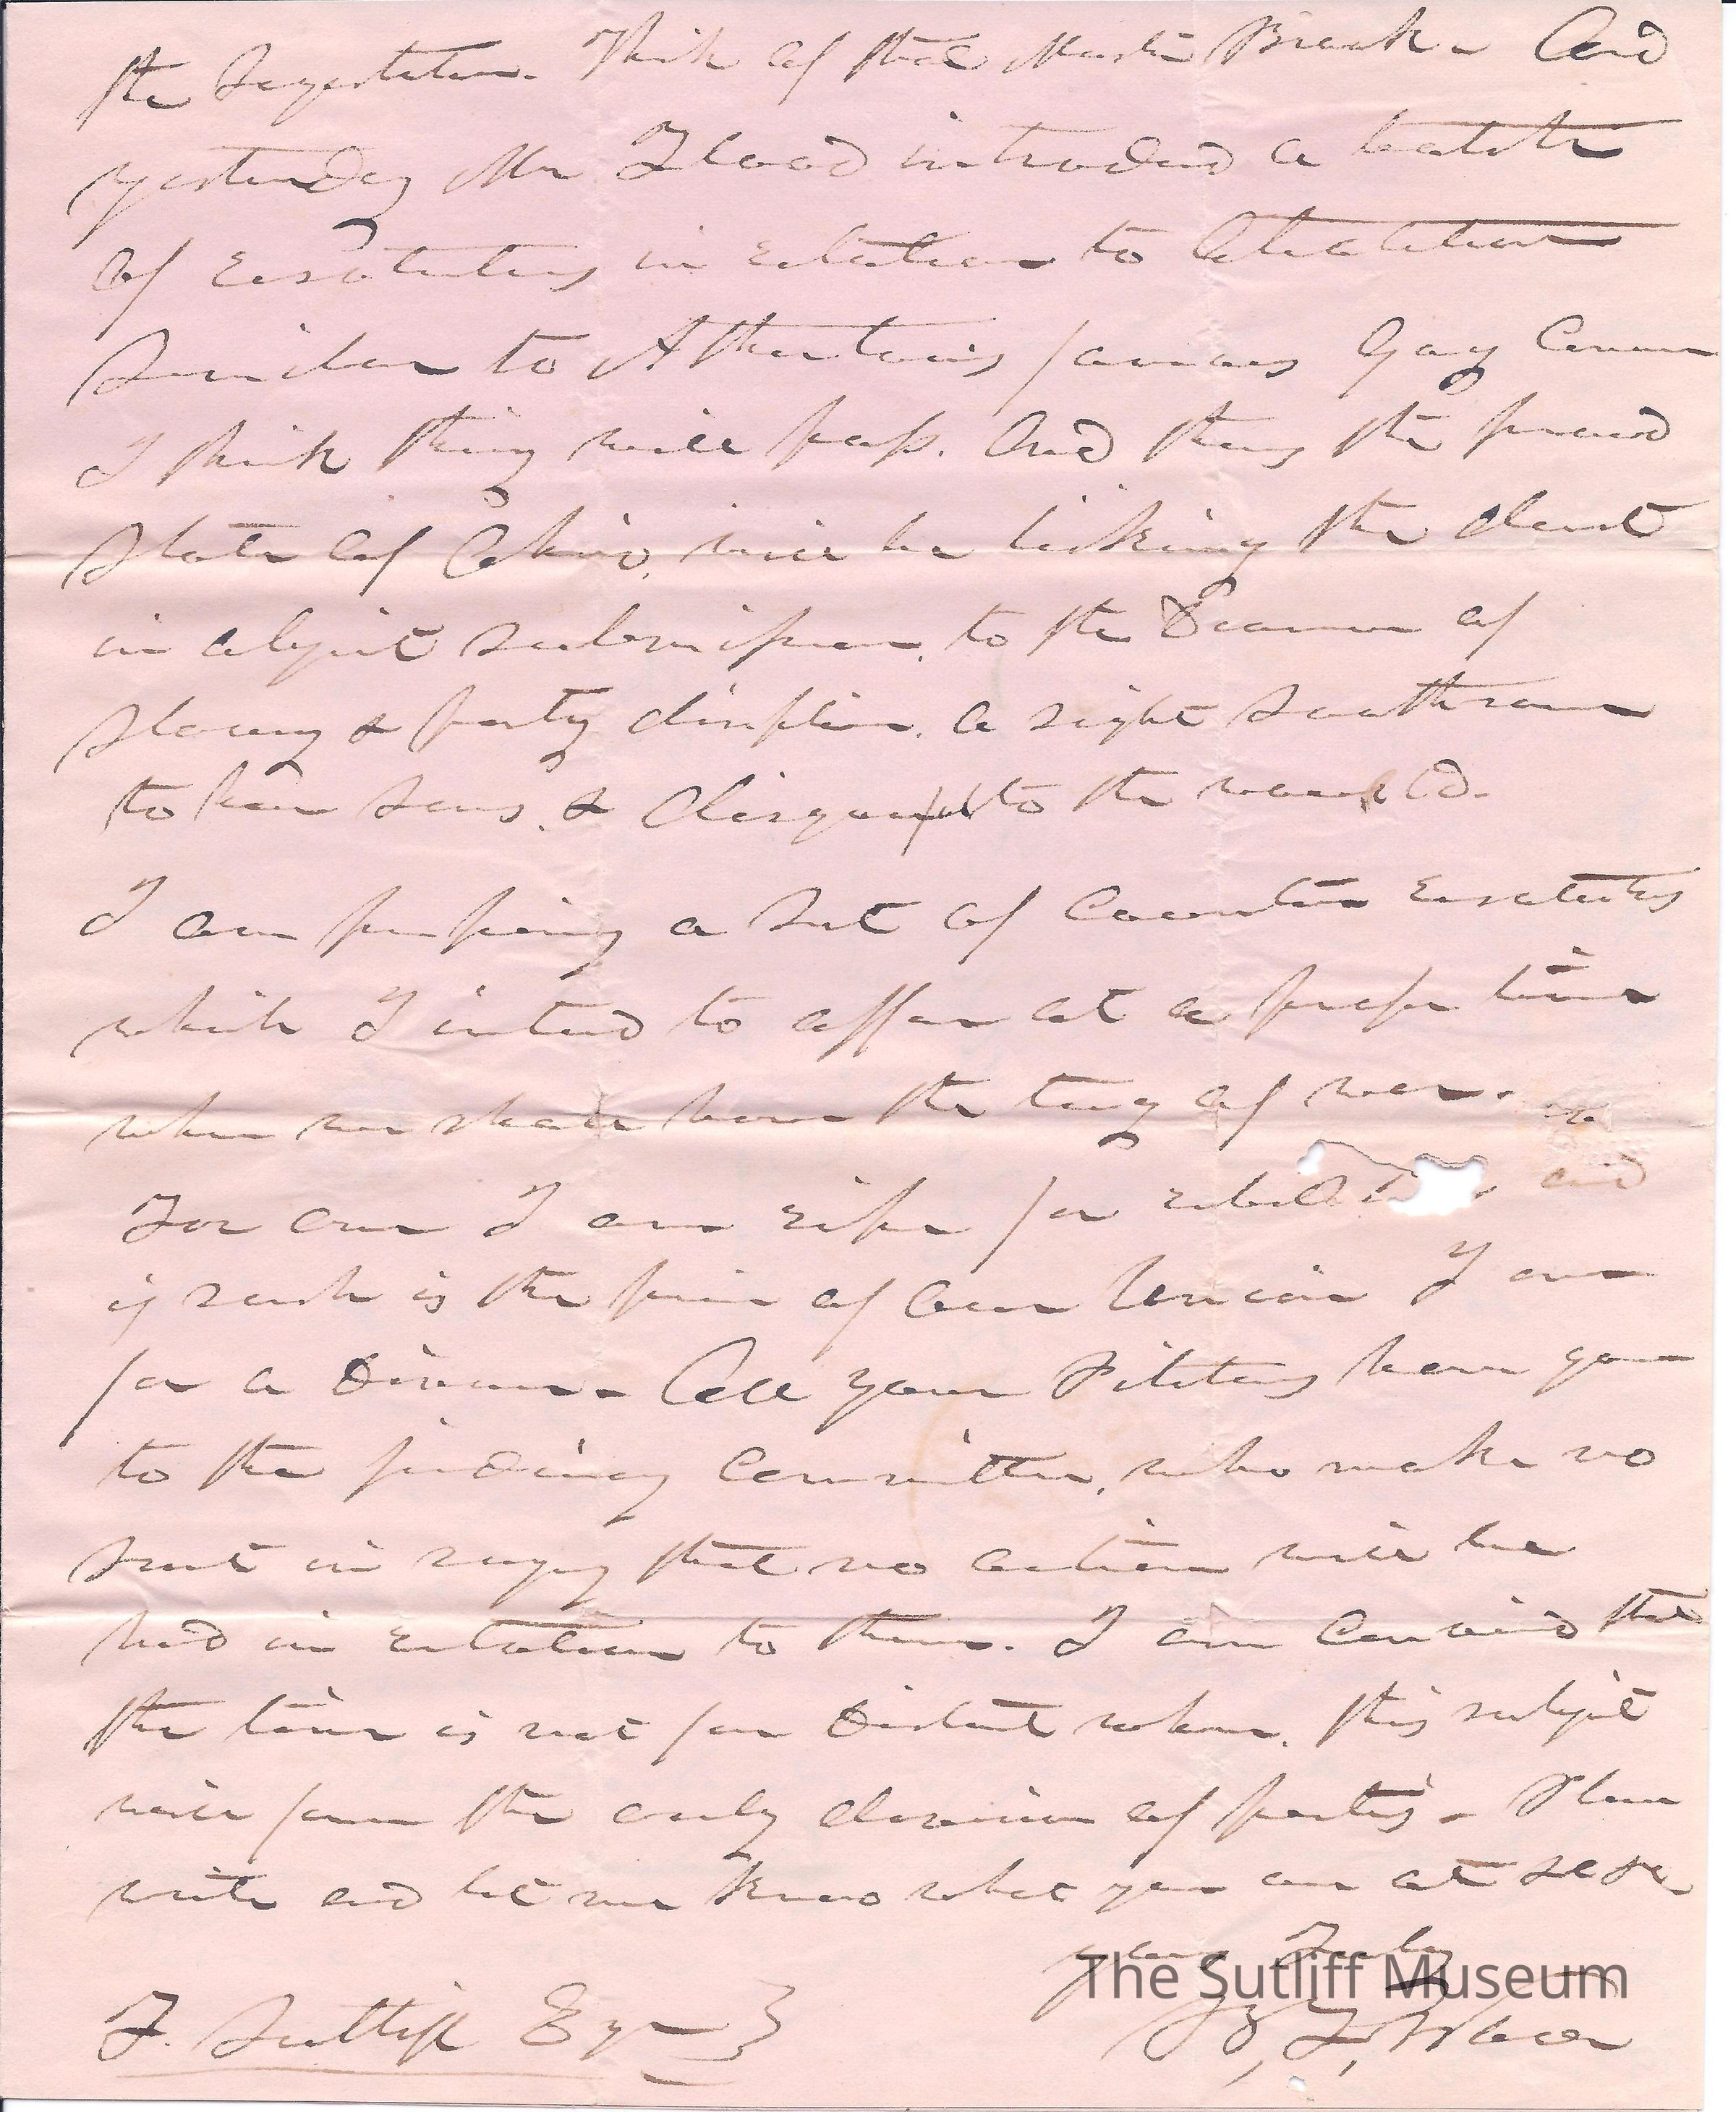 the Legislature. Think of that Martin Brack. And
yesterday Mr Flood introduced a batch
of Resolutions in relation to Abolition
Similar to Athertons famous Gag
I think they will pass. And thus the proud
State of Ohio, will be licking the dust
in abject submission, to the Demon of
Slavery & party discipline. a sight
to her sons, & disgraceful to the world.
I am preparing a set of Counter Resolutions
which I intend to offer at a proper time
when we shall have the tug of war.
For one I am ripe for and
if such is the price of our Union I am
for a Division. All your Petitions have gone
to the judiciary Committee, who make no
secret in saying that no action will be
had in relation to them. I am Convinced that
the time is not far Distant when, this subject
will form the only division of parties. Please
write and let me know what you are at
yours Truly
F. Sutliff Esqr
The Sutliff Museum